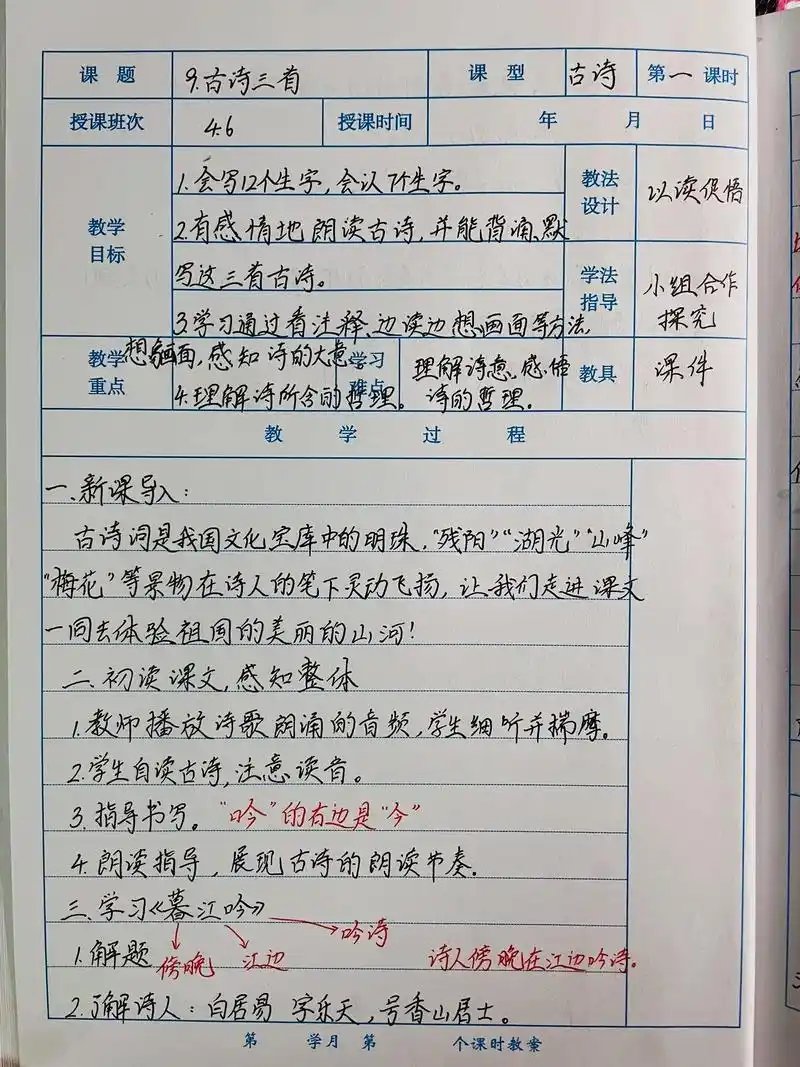 课 题 9.古诗三首 课 型 古诗 第一 课时
授课班次 4.6 授课时间 年 月 日
教学目标
1.会写12个生字,会认7个生字。
2.有感情地朗读古诗,并能背诵、默
写这三首古诗。
3.学习通过看注释、边读边想画面等方法,
想象画面,感知诗的大意。
4.理解诗所含的哲理。
教法设计 以读促悟
学法指导 小组合作探究
教学重点
学习难点 理解诗意,感悟诗的哲理。
教具 课件
教 学 过 程
一.新课导入:
古诗词是我国文化宝库中的明珠,“残阳”“湖光”“山峰”
“梅花”等景物在诗人的笔下灵动飞扬,让我们走进课文
一同去体验祖国的美丽的山河!
二.初读课文,感知整体
1.教师播放诗歌朗诵的音频,学生细听并揣摩。
2.学生自读古诗,注意读音。
3.指导书写。“吟”的右边是“今”
4.朗读指导,展现古诗的朗读节奏.
三.学习《暮江吟》
吟诗
1.解题 傍晚 江边 诗人傍晚在江边吟诗。
2.了解诗人:白居易 字乐天,号香山居士。
第 学月 第 个课时教案